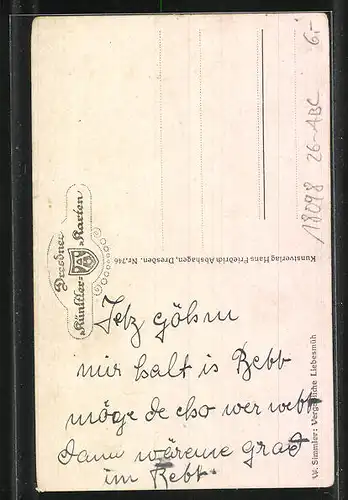 Dresdner
Künstler-Karten
Kunstverlag Hans Friedrich Abshagen, Dresden. Nr. 746
W. Simmler: Vergebliche Liebesmüh
18098 26-ABC
6,-
Jetz göhm
mir halt is Bebb
möge de cho wer webb
Dann wäreme grad
im Bebb